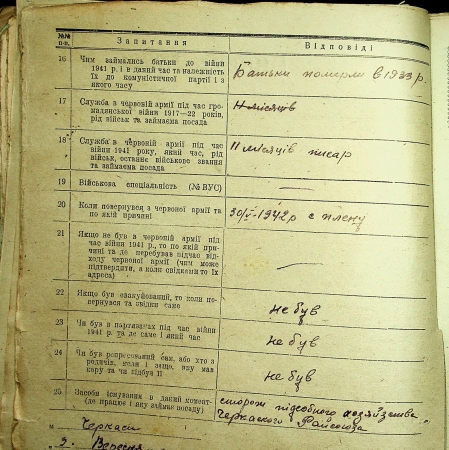 №№
п-п.
Запитання
Відповіді
16
Чим займались батьки до війни
1941 р. і в даний час та належність
їх до комуністичної партії і з
якого часу
Батьки померли в 1933 р.
17
Служба в червоній армії під час гро-
мадянської війни 1917—22 років,
рід військ та займаєма посада
11 місяців
18
Служба в червоній армії під час
війни 1941 року, який час, рід
військ, останнє військове звання
та займаєма посада
11 місяців писар
19
Військова спеціальність (№ ВУС)
—
20
Коли повернувся з червоної армії та
по якій причині
30/V-1942 р с плену
21
Якщо не був в червоній армії під
час війни 1941 р., то по якій при-
чині та де перебував підчас від-
ходу червоної армії (чим може
підтвердити, а коли свідками то їх
адреса)
—
22
Якщо був евакуйований, то коли по-
вернувся та звідки саме
не був
23
Чи був в партизанах під час війни
1941 р. та де саме і який час
не був
24
Чи був репресований сам, або хто з
родичів, коли і защо, яку мав
кару та чи відбув її
не був
25
Засоби існування в даний момент
(де працює і яку займає посаду)
сторож підсобного хозяйства
Черкаского Райсоюза
м
Черкаси
3. Вересня